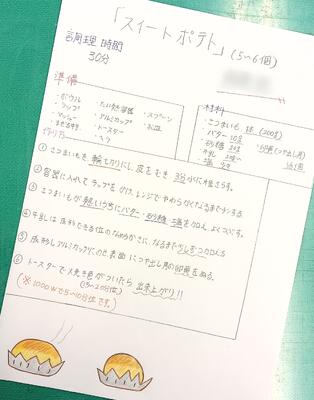 「スイートポテト」(5〜6個)
調理時間
30分
準備
・ボウル ・たいねつ容器 ・スプーン
・ラップ ・アルミカップ ・お皿
・マッシャー ・トースター
・ヘラ
材料
・さつまいも 1本 (200g)
・バター 10g
・砂糖
・牛乳
・塩 少々
作り方
① さつまいもを輪切りにし、皮をむき3分水に付けさらす。
② 容器に入れてラップをかけ、レンジでやわらかくなるまでチンする
③ さつまいもが熱いうちにバター・砂糖・塩を加え、よくつぶす。
④ 牛乳は成形できる位のなめらかさに、なるまで少しずつ加える
⑤ 成形しアルミカップにのせ表面につや出し用の卵黄をぬる。
⑥ トースターで焼き色がついたら出来上がり!!
(15〜20分位)
(※1000Wで5〜10分位です。)